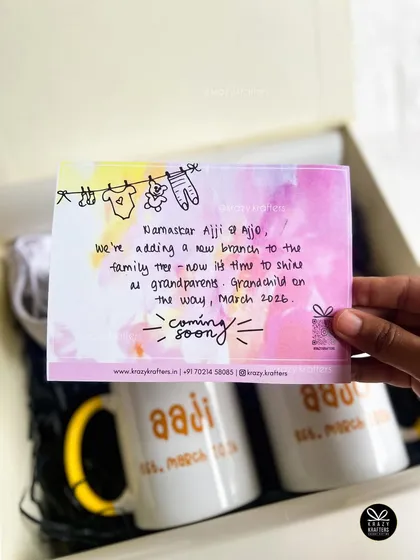 @krazykrafters
Namaskar Ajji & Ajjo,
We're adding a new branch to the
family tree - now it's time to shine
as grandparents. Grandchild on
the way, March 2026.
coming
soon
www.krazykrafters.in | +91 70214 58085 | krazy.krafters
aaji
EST. MARCH 2026
KRAZY
KRAFTERS